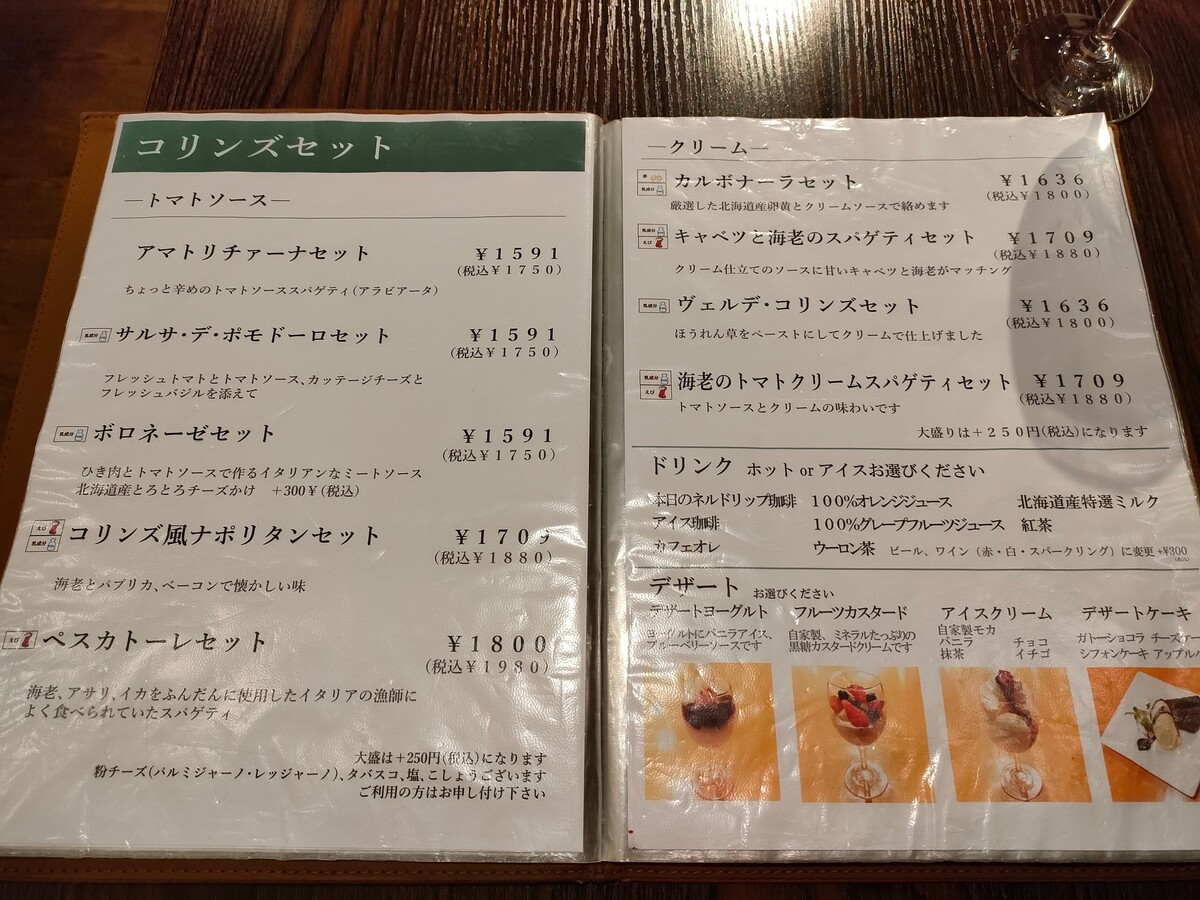 コリンズセット
―トマトソース―
アマトリチァーナセット ￥1591
(税込￥1750)
ちょっと辛めのトマトソーススパゲティ(アラビアータ)
乳成分 サルサ・デ・ポモドーロセット ￥1591
(税込￥1750)
フレッシュトマトとトマトソース、カッテージチーズと
フレッシュバジルを添えて
乳成分 ボロネーゼセット ￥1591
(税込￥1750)
ひき肉とトマトソースで作るイタリアンなミートソース
北海道産とろとろチーズかけ +300￥(税込)
えび
乳成分
コリンズ風ナポリタンセット ￥1709
(税込￥1880)
海老とパプリカ、ベーコンで懐かしい味
えび ペスカトーレセット ￥1800
(税込￥1980)
海老、アサリ、イカをふんだんに使用したイタリアの漁師に
よく食べられていたスパゲティ
大盛は+250円(税込)になります
粉チーズ(パルミジャーノ・レッジャーノ)、タバスコ、塩、こしょうございます
ご利用の方はお申し付け下さい
―クリーム―
卵
乳成分
カルボナーラセット ￥1636
(税込￥1800)
厳選した北海道産卵黄とクリームソースで絡めます
乳成分
えび
キャベツと海老のスパゲティセット ￥1709
(税込￥1880)
クリーム仕立てのソースに甘いキャベツと海老がマッチング
乳成分 ヴェルデ・コリンズセット ￥1636
(税込￥1800)
ほうれん草をペーストにしてクリームで仕上げました
乳成分
えび
海老のトマトクリームスパゲティセット ￥1709
(税込￥1880)
トマトソースとクリームの味わいです
大盛りは+250円(税込)になります
ドリンク ホット or アイスお選びください
本日のネルドリップ珈琲 100%オレンジジュース 北海道産特選ミルク
アイス珈琲 100%グレープフルーツジュース 紅茶
カフェオレ ウーロン茶 ビール、ワイン（赤・白・スパークリング）に変更 +￥300
(税込)
デザート お選びください
デザートヨーグルト フルーツカスタード アイスクリーム デザートケーキ
ヨーグルトにバニラアイス、
ブルーベリーソースです
自家製、ミネラルたっぷりの
黒糖カスタードクリームです
自家製モカ
バニラ チョコ
抹茶 イチゴ
ガトーショコラ チーズケー
シフォンケーキ アップル